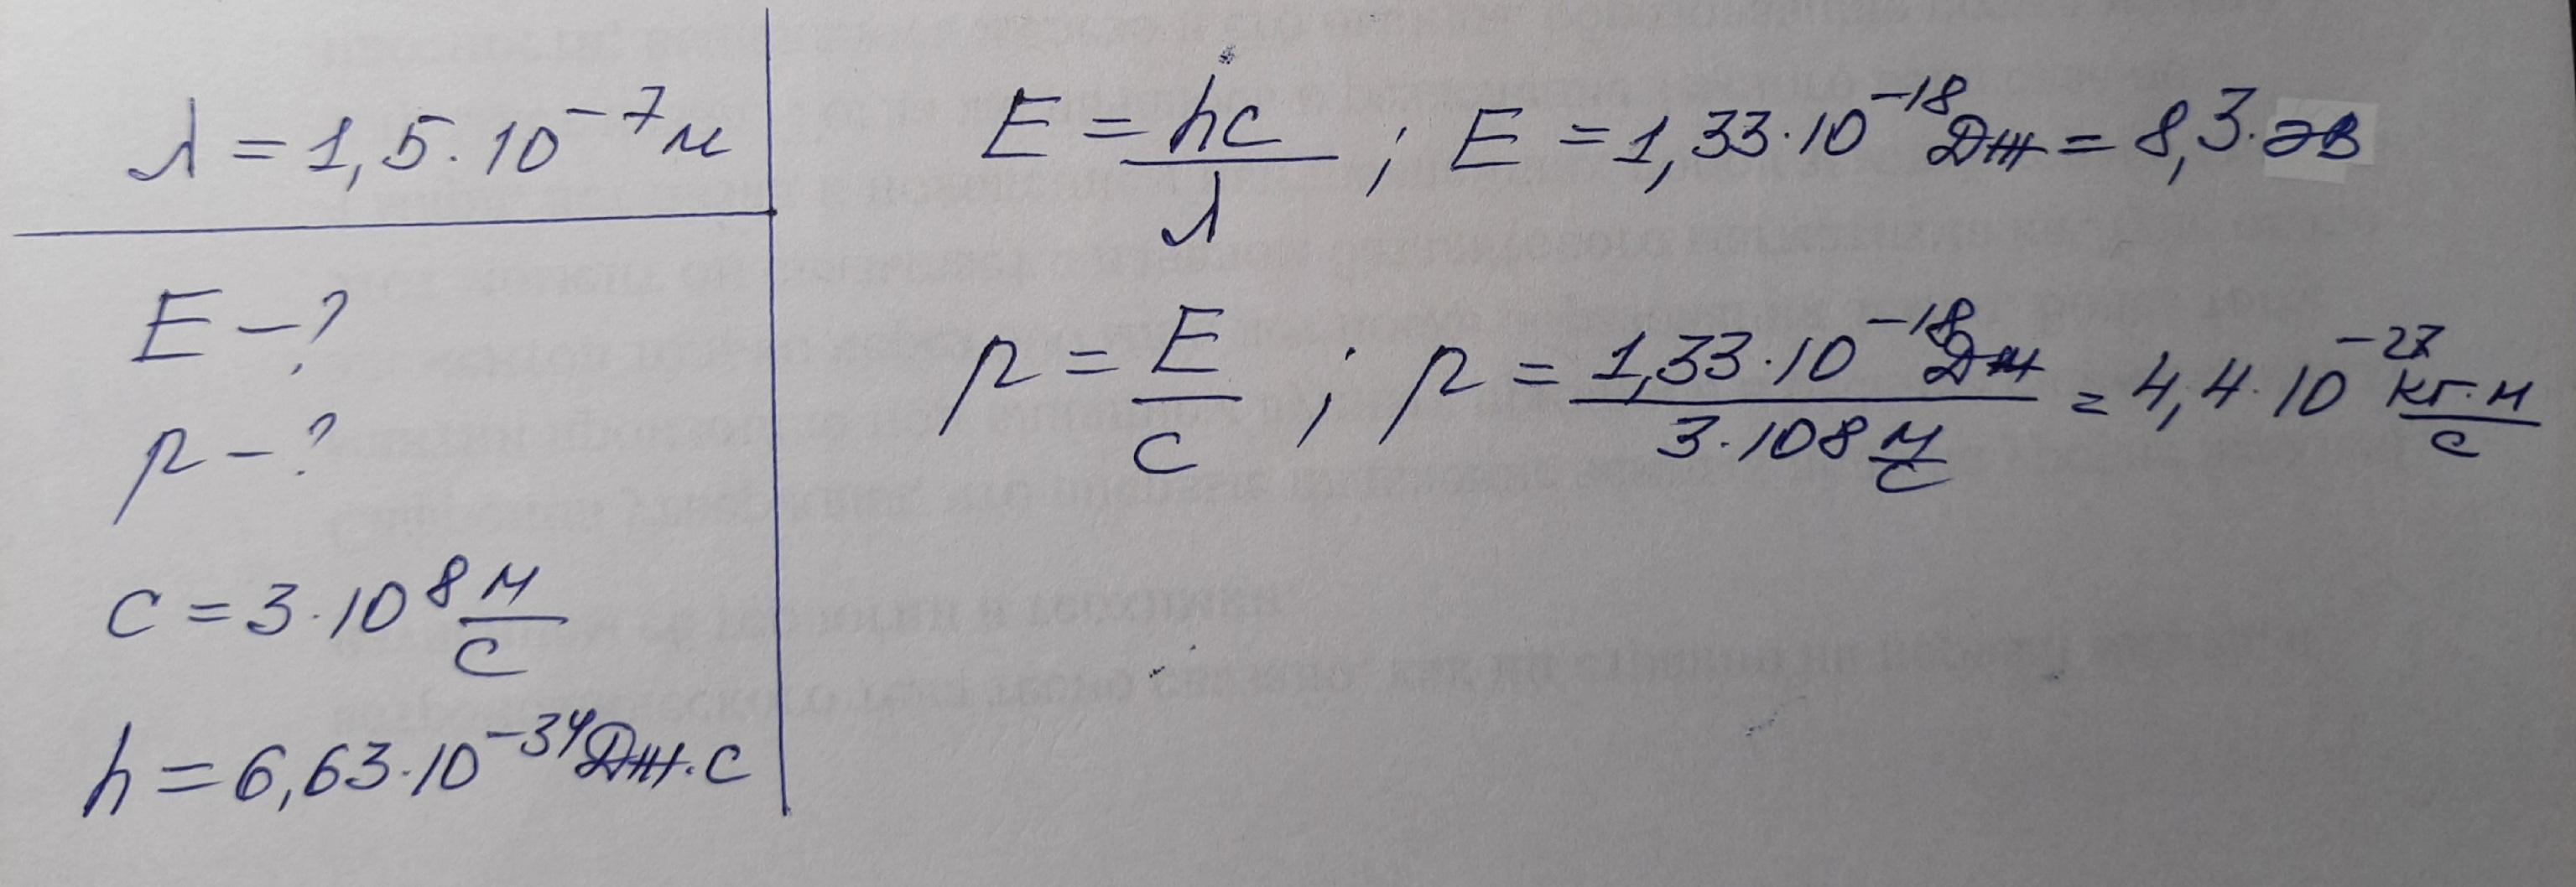 λ = 1,5·10⁻⁷ м
E – ?
p – ?
c = 3·10⁸ м/с
h = 6,63·10⁻³⁴ Дж·с
E = hc/λ ; E = 1,33·10⁻¹⁸ Дж = 8,3·эв
p = E/c ; p = 1,33·10⁻¹⁸ Дж / 3·108 м/с = 4,4·10⁻²⁷ кг·м/с